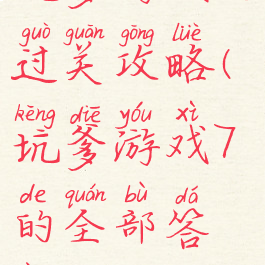 guò guān gōng lüè
过关攻略(
kēng diē yóu xì
坑爹游戏7
de quán bù dá
的全部答